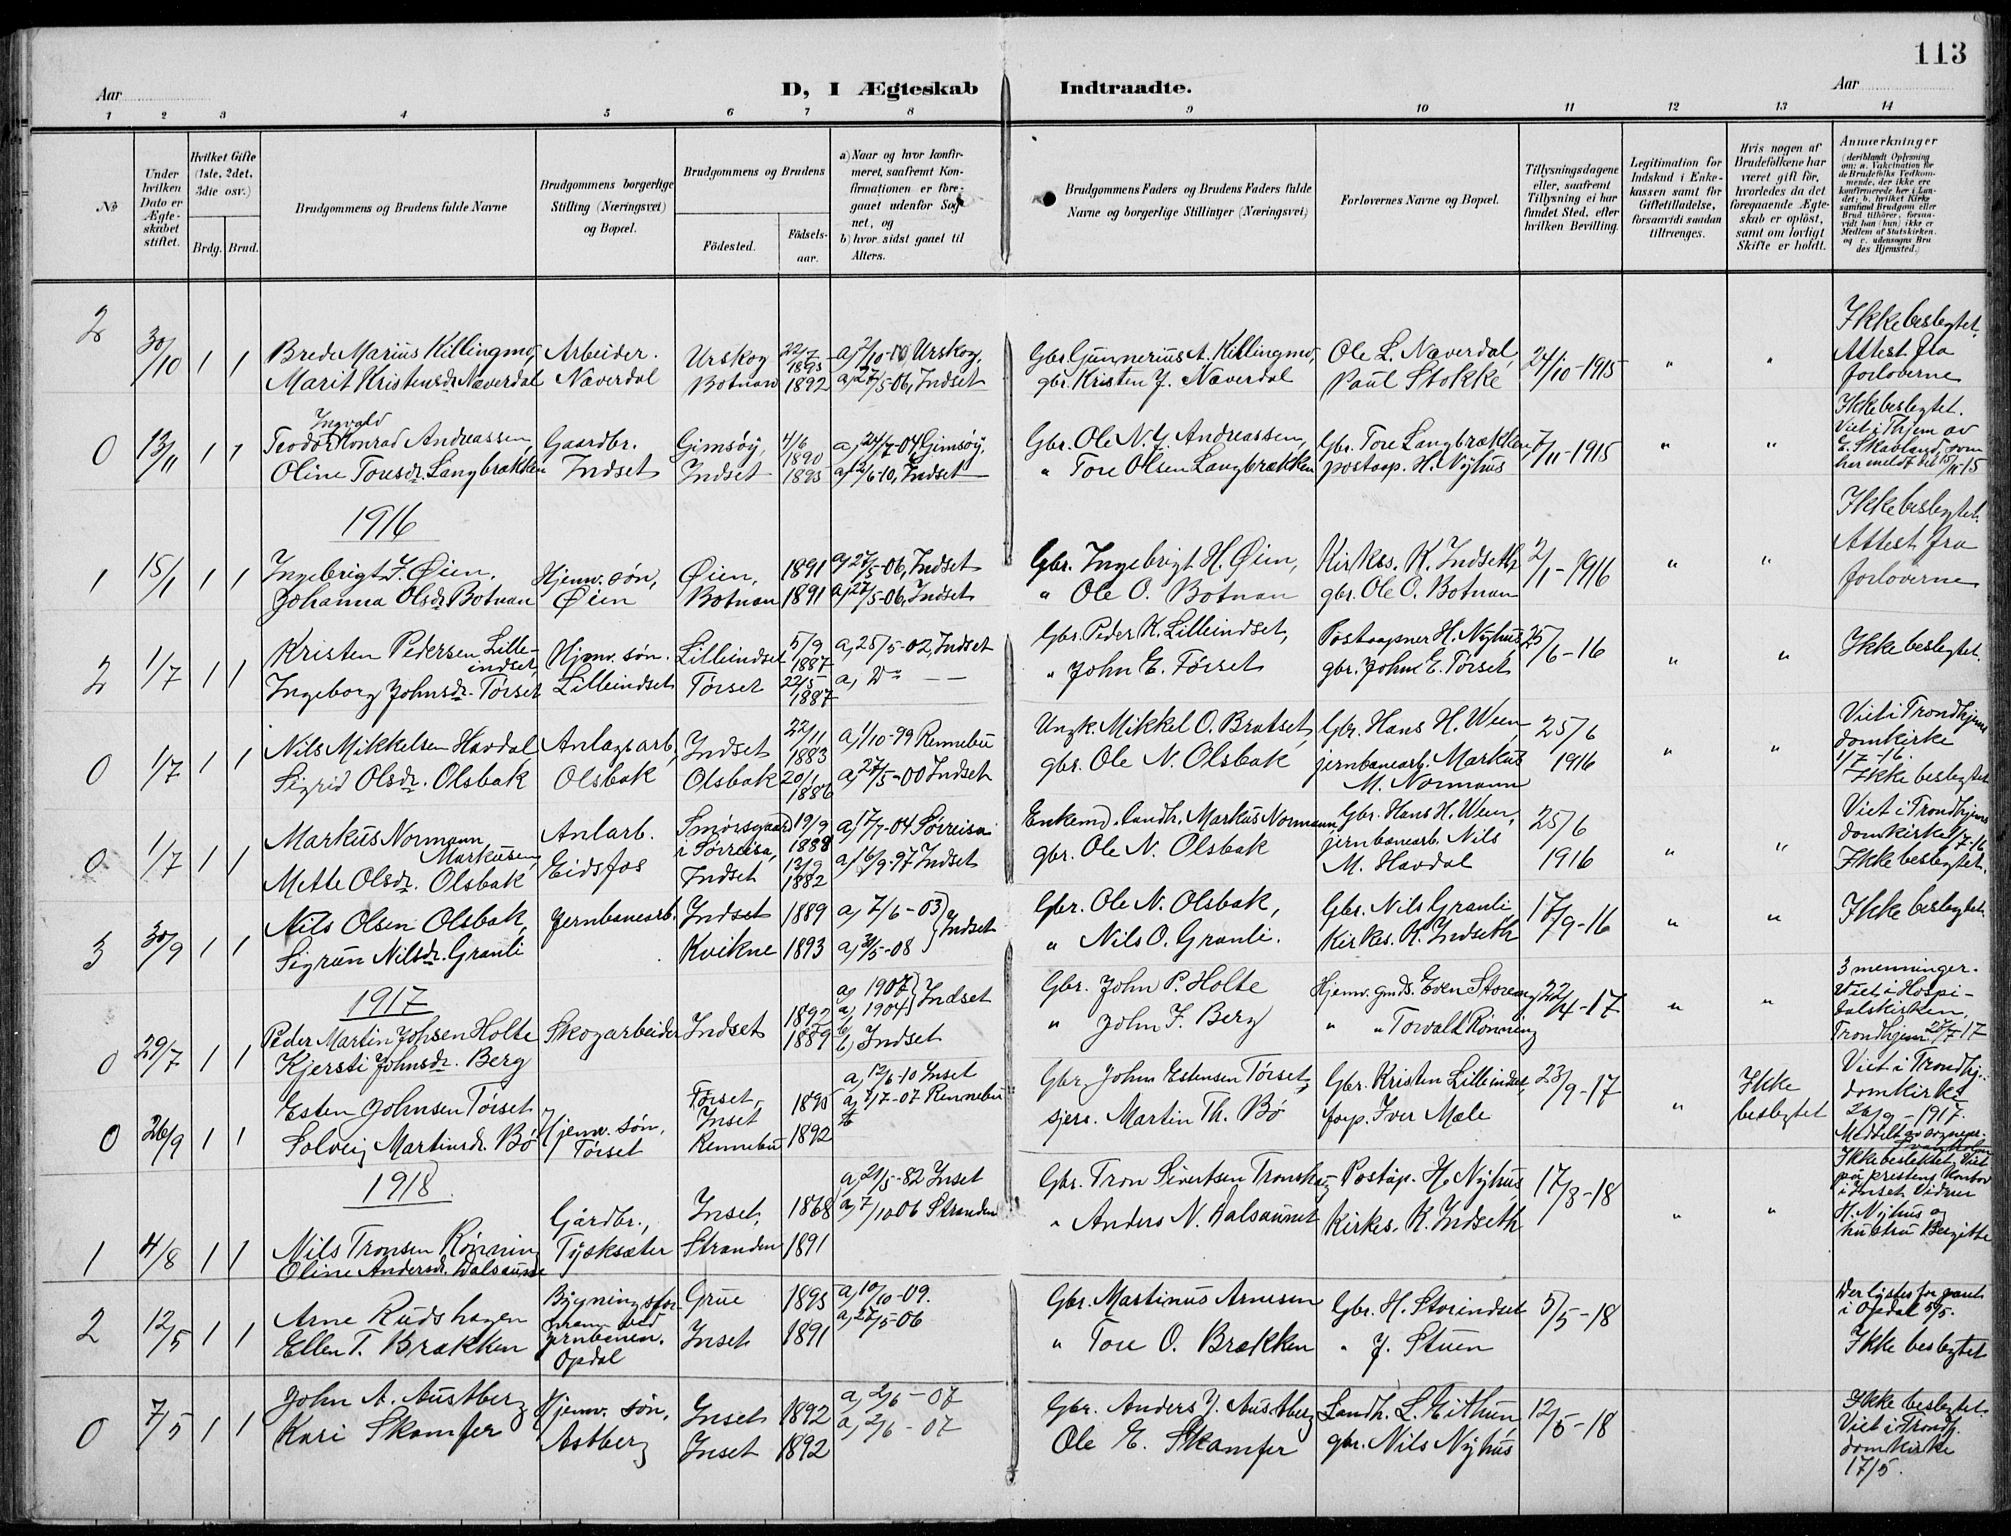 113
D, I Ægteskab Indtraadte.
Aar Aar
1 2 3 4 5 6 7 8 9 10 11 12 13 14
№
Under hvilken Dato er Ægteskabet stiftet.
Hvilket Gifte (1ste, 2det, 3die osv.)
Brdg. Brud.
Brudgommens og Brudens fulde Navne
Brudgommens borgerlige Stilling (Næringsvei) og Bopæl.
Brudgommens og Brudens
Födested. Födsels-aar.
a) Naar og hvor konfirmeret, saafremt Konfirmationen er foregaaet udenfor Sognet, og
b) hvor sidst gaaet til Alters.
Brudgommens Faders og Brudens Faders fulde Navne og borgerlige Stillinger (Næringsvei)
Forlovernes Navne og Bopæl.
Tillysningsdagene eller, saafremt Tillysning ei har fundet Sted, efter hvilken Bevilling.
Legitimation for Indskud i Enkekassen samt for Giftetilladelse, forsaavidt saadan tiltrænges.
Hvis nogen af Brudefolkene har været gift før, hvorledes da det foregaaende Ægteskab er oplöst, samt om lovligt Skifte er holdt.
Anmærkninger
2 30/10 1 1 Brede Marius Killingmo, Arbeider. Urskog 22/7 1893 a, 2/10-10 Urskog, Gbr. Gunnerius A. Killingmo, Ole L. Næverdal, 24/10-1915 " " Ikke beslegtet.
Marit Kristensdr. Næverdal Næverdal Botnan 1892 a, 27/5-06, Indset gbr. Kristen J. Næverdal Paul Stokke Attest fra forloverne
0 13/11 1 1 Teodor Ingvald Konrad Andreassen, Gaardbr. Gimsöy, 4/6 1890 a, 24/7-04 Gimsöy, Gbr. Ole N. G. Andreassen, Gbr. Tore Langbrækken 7/11-1915 " " Ikke beslegtet.
Oline Toresdr. Langbrækken Indset Indset 1893 a, 12/6-10, Indset " Tore Olsen Langbrækken postaap. H. Nyhus Viet i Thjem av E. Skabland, som har meldt det 15/11-15
1916
1 15/1 1 1 Ingebrigt I. Øien, Hjemv. søn, Øien, 1891 a, 27/5-06, Indset Gbr. Ingebrigt H. Øien, Kirkes. K. Indseth 2/1-1916 " " Ikke beslegtet.
Johanna Olsdr. Botnan Øien Botnan 1891 a, 27/5-06, Indset " Ole O. Botnan gbr. Ole O. Botnan Attest fra forloverne
2 1/7 1 1 Kristen Pedersen Lilleindset, Hjmv. søn. Lilleindset 5/9 1887 a, 25/5-02, Indset Gbr. Peder K. Lilleindset, Postaapner H. Nyhus, 25/6-16 " " Ikke beslegtet.
Ingeborg Johnsdr. Tørset Lilleindset Tørset 22/5 1887 a, Do " John E. Tørset gbr. John E. Tørset
0 1/7 1 1 Nils Mikkelsen Havdal Anlægsarb. Indset 22/11 1883 a, 1/10-99 Rennebu Ungk. Mikkel O. Bratset, Gbr. Hans H. Ween, 25/6 " " Viet i Trondhjems domkirke 1/7-16.
Sigrid Olsdr. Olsbak Olsbak Olsbak 20/1 1886 a, 27/5-00 Indset gbr. Ole N. Olsbak jernbanearb. Markus M. Normann 1916 Ikke beslegtet
0 1/7 1 1 Markus Normann Markusen, Anlarb. Smörsgaard i Sörreisa, 19/9 1888 a, 17/7-04 Sörreisa Enkemd. landh. Markus Normann, Gbr. Hans H. Ween, 25/6 " " Viet i Trondhjems domkirke 1/7-16
Mette Olsdr. Olsbak Eidsfos Indset 13/2 1882 a, 16/9-97 Indset gbr. Ole N. Olsbak jernbanearb. Nils M. Havdal 1916 Ikke beslegtet.
3 30/9 1 1 Nils Olsen Olsbak, Jernbanearb. Indset 1889 a, 7/6-03 } Indset Gbr. Ole N. Olsbak, Gbr. Nils Granli 17/9-16 " " Ikke beslegtet.
Sigrun Nilsdr. Granli Kvikne 1893 a, 31/5-08 " Nils O. Granli. Kirkes. K. Indseth
1917
0 29/7 1 1 Peder Martin Johsen Holte Skogarbeider Indset 1892 a, 1907 } Indset Gbr. John P. Holte Hjemv. gmds. Even Storeng 22/4-17 " " 3 menninger.
Kjersti Johnsdr. Berg 1889 a, 1904 b, Indset " John J. Berg " " Torvald Rønning Viet i Hospitalskirken, Trondhjem 29/7-17
0 26/9 1 1 Esten Johnsen Tørset Hjemv. søn, Tørset, Inset 1895 a, 12/6-10 Inset Gbr. John Estensen Tørset, Gbr. Kristen Lilleindset, 23/9-17 " Ikke beslegtet Viet i Trondhj. domkirke 26/9-1917.
Solveig Martinsdr. Bö Tørset Rennebu 1892 a, 7/7-07 Rennebu sjers. Martin Th. Bö forp. Iver Mæle Meddelt av sognepr.
1918
1 4/8 1 1 Nils Tronsen Rønning Gårdbr., Inset, 1868 a, 21/5-82 Inset Gbr. Tron Sivertsen Tronshaug Poståp. H. Nyhus, 17/3-18 " " Ikke beslektet. Viet på prestens kontor i Inset. Vidner H. Nyhus og hustru Bergitte
Oline Andersdr. Dalsaunet Tysksæter Stranden 1891 a, 7/10 06 Stranden " Anders N. Dalsaunet Kirkes. K. Indseth
2 12/5 1 1 Arne Rudshagen Bygningsforman ved jernbanen. Grue 1895 a, 10/10-09. Gbr. Martinus Arnesen Gbr. H. Storindset 5/5-18 Der lystes for paret i Opdal 5/5.
Ellen T. Brækken Opdal Inset 1891 a, 27/5-06 " Tore O. Brækken " J. Stuen Ikke beslegtet
0 7/5 1 1 John A. Austberg Hjemv. søn, Inset 1892 a, 2/6-07 Gbr. Anders J. Austberg Landh. L. Eithun, 12/5-18 Ikke beslegtet. Viet i Trondhj. domkirke 17/5.
Kari Skamfer Astberg Inset 1892 a, 2/6-07 Ole E. Skamfer gbr. Nils Nyhus